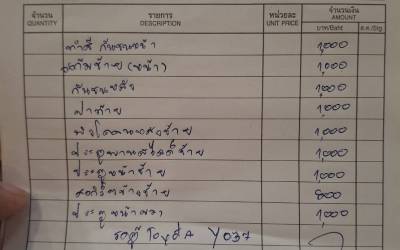 จำนวน รายการ หน่วยละ จำนวนเงิน
QUANTITY DESCRIPTION UNIT PRICE AMOUNT
บาท/Baht ส.ต./Stg
ทำสี กันชนหน้า 1,000
แก้มซ้าย (หน้า) 1,000
กันชนหลัง 1,000
ฝาท้าย 1,000
บังโคลนหลังซ้าย 1,000
ประตูบานสไลด์ซ้าย 1,000
ประตูหน้าซ้าย 1,000
สเกิร์ตข้างซ้าย 800
ประตูหน้าขวา 1,000
รถตู้ Toyota Y037